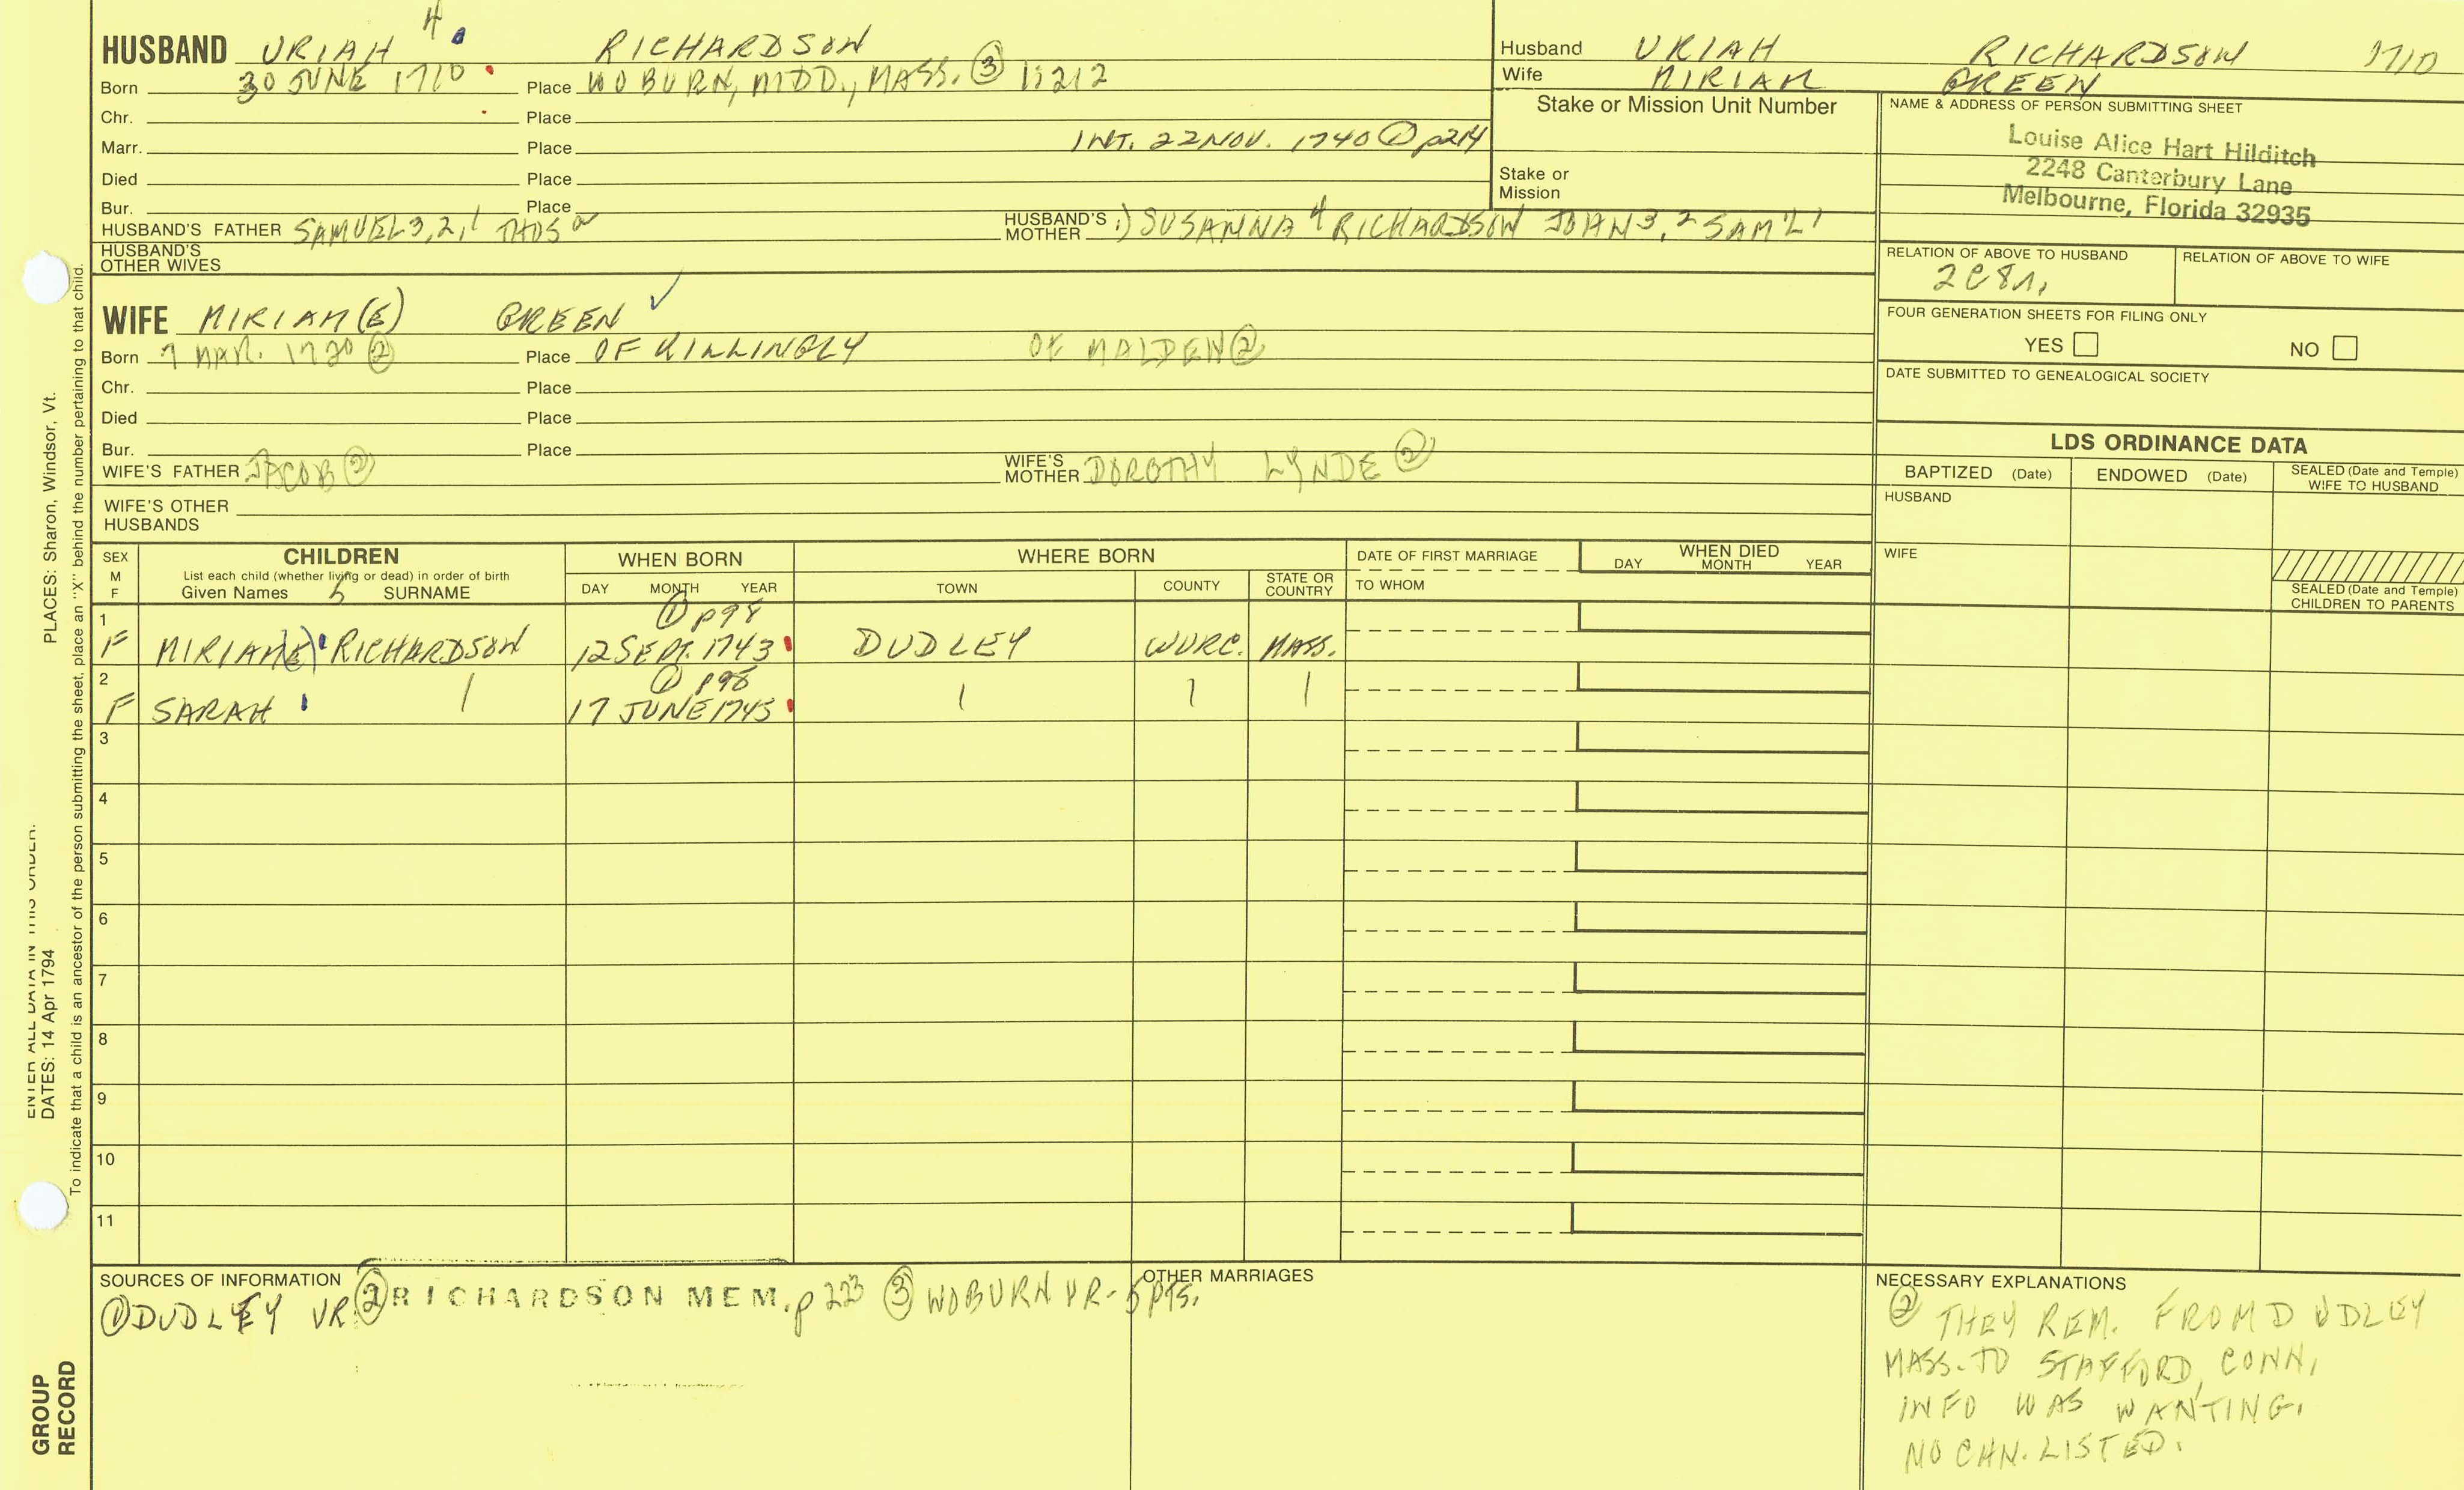 HUSBAND URIAH 4 RICHARDSON
Born 30 JUNE 1710 Place WOBURN, MDD., MASS. ③ 1:212
Chr. Place
Marr. Place INT. 22 NOV. 1740 ① p214
Died Place
Bur. Place
HUSBAND'S FATHER SAMUEL 3,2,1 THOS HUSBAND'S MOTHER :) SUSANNA 4 RICHARDSON JOHN 3,2 SAM'L 1
HUSBAND'S OTHER WIVES
WIFE MIRIAM(E) GREEN ✓
Born 7 MAR. 1720 ② Place OF KILLINGLY OF MALDEN ②
Chr. Place
Died Place
Bur. Place
WIFE'S FATHER JACOB ② WIFE'S MOTHER DOROTHY LYNDE ②
WIFE'S OTHER HUSBANDS
Husband URIAH RICHARDSON 1710
Wife MIRIAM GREEN
Stake or Mission Unit Number
Stake or Mission
NAME & ADDRESS OF PERSON SUBMITTING SHEET
Louise Alice Hart Hilditch
2248 Canterbury Lane
Melbourne, Florida 32935
RELATION OF ABOVE TO HUSBAND RELATION OF ABOVE TO WIFE
2C8R,
FOUR GENERATION SHEETS FOR FILING ONLY
YES NO
DATE SUBMITTED TO GENEALOGICAL SOCIETY
LDS ORDINANCE DATA
BAPTIZED (Date) ENDOWED (Date) SEALED (Date and Temple) WIFE TO HUSBAND
HUSBAND
WIFE
SEALED (Date and Temple) CHILDREN TO PARENTS
SEX M F
CHILDREN
List each child (whether living or dead) in order of birth
Given Names 5 SURNAME
WHEN BORN
DAY MONTH YEAR
WHERE BORN
TOWN COUNTY STATE OR COUNTRY
DATE OF FIRST MARRIAGE
TO WHOM
WHEN DIED
DAY MONTH YEAR
① p98
1 F MIRIAM(E) RICHARDSON 12 SEPT. 1743 DUDLEY WORC. MASS.
① p98
2 F SARAH 17 JUNE 1745
3
4
5
6
7
8
9
10
11
SOURCES OF INFORMATION
① DUDLEY VR. ② RICHARDSON MEM. p 223 ③ WOBURN VR - 5 pts.
OTHER MARRIAGES
NECESSARY EXPLANATIONS
② THEY REM. FROM DUDLEY
MASS. TO STAFFORD, CONN,
INFO WAS WANTING.
NO CHN. LISTED.
PLACES: Sharon, Windsor, Vt.
To indicate that a child is an ancestor of the person submitting the sheet, place an "X" behind the number pertaining to that child.
ENTER ALL DATA IN THIS ORDER:
DATES: 14 Apr 1794
GROUP
RECORD